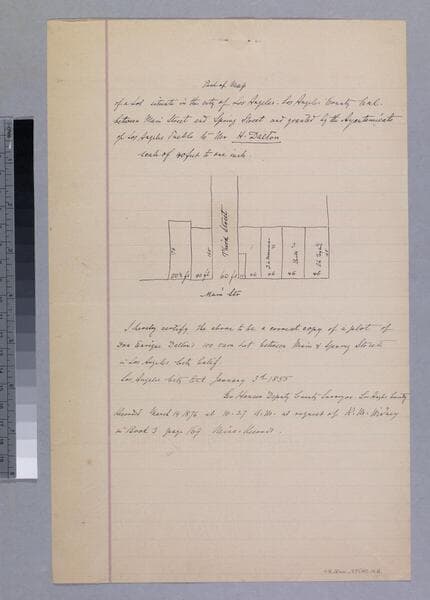 Part of Map
of a Lot situate in the city of Los Angeles - Los Angeles County Cal.
between Main Street and Spring Street and granted by the Ayuntamiento
of Los Angeles Pueblo to Don H. Dalton
scale of 40 feet to one inch.
Third Street
60 ft
Main Str
I hereby certify the above to be a correct copy of a plot of
Don Enrique Dalton's 100 vara Lot between Main & Spring Streets
in Los Angeles City Calif.
Los Angeles City Oct January 3rd 1855
Geo Hansen Deputy County Surveyor Los Angeles County
Recorded March 14 1876 at 10.27 A.M. at request of R. M. Widney
in Book 3 page 169 Misc. Records.